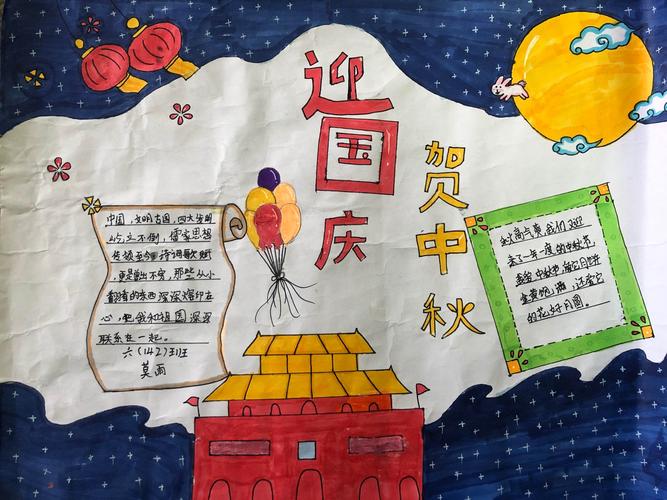 迎国庆
贺中秋
中国，文明古国，四大发明
屹立不倒，儒家思想
传领至今，诗词歌赋
更是层出不穷，那些从小
都背的东西深深烙印在
心，把我和祖国深深
联系在一起。
六(142)班
莫雨
秋高气爽，我们又迎
来了一年一度的中秋节，
喜爱中秋节，爱它月饼
金黄明，满，还爱它
的花好月圆。